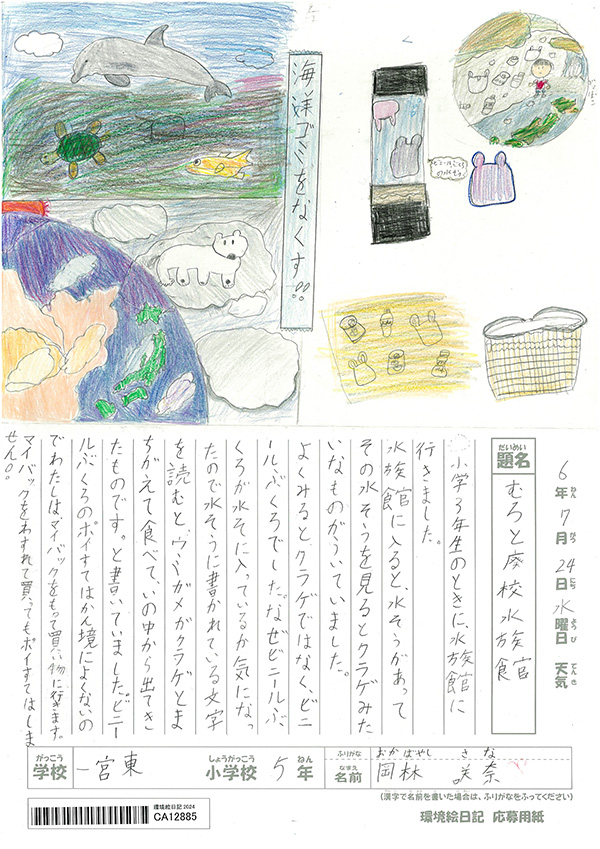 海洋ゴミをなくす!!
ビニールぶくろの水そう
6年7月24日水曜日 天気
ねん がつ にち ようび てんき
だいめい
題名 むろと廃校水族館
小学3年生のときに、水族館に
行きました。
水族館に入ると、水そうがあって
その水そうを見るとクラゲみた
いなものがういていました。
よくみると、クラゲではなく、ビニ
ールぶくろでした。なぜビニールぶ
くろが水そに入っているか気になっ
たので水そうに書かれている文字
を読むと、ウミガメがクラゲとま
ちがえて食べて、いの中から出てき
たものです。と書いていました。ビニー
ルぶくろのポイすてはかん境によくないの
でわたしは、マイバックをもって買い物に行きます。
マイバックをわすれて買ってもポイすてはしま
せん。
がっこう しょうがっこう ねん
学校 一宮東 小学校 5年
ふりがな おかばやし さな
なまえ
名前 岡林 咲奈
(漢字で名前を書いた場合は、ふりがなをふってください)
環境絵日記 2024
CA12885
環境絵日記 応募用紙